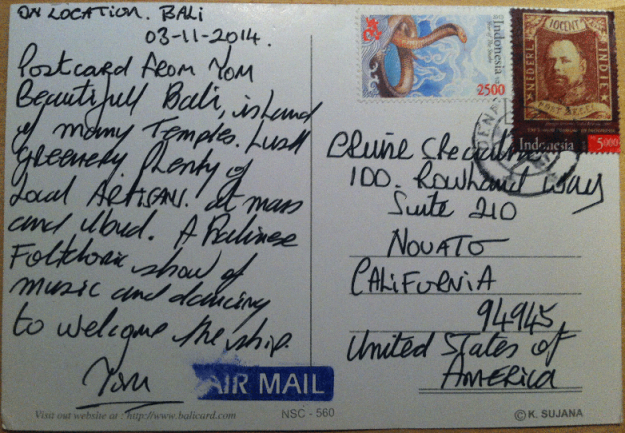 ON LOCATION. BALI
03-11-2014.
Postcard from Yom
Beautifull Bali, island
of many Temples. Lush
GREENERY. Plenty of
Local ARTISAN. at mass
and Ubud. A Balinese
Folkloric show of
music and dancing
to welcome the ship.
Yom
AIR MAIL
Visit out website at : http://www.balicard.com
NSC - 560
Indonesia
2500
10CENT
NEDERL.
INDIE
POSTZEGEL
Indonesia
5000
DENPA
CRUISE
100. Rowland Way
Suite 210
NOVATO
CALIFORNIA
94945
United States of
America
© K. SUJANA